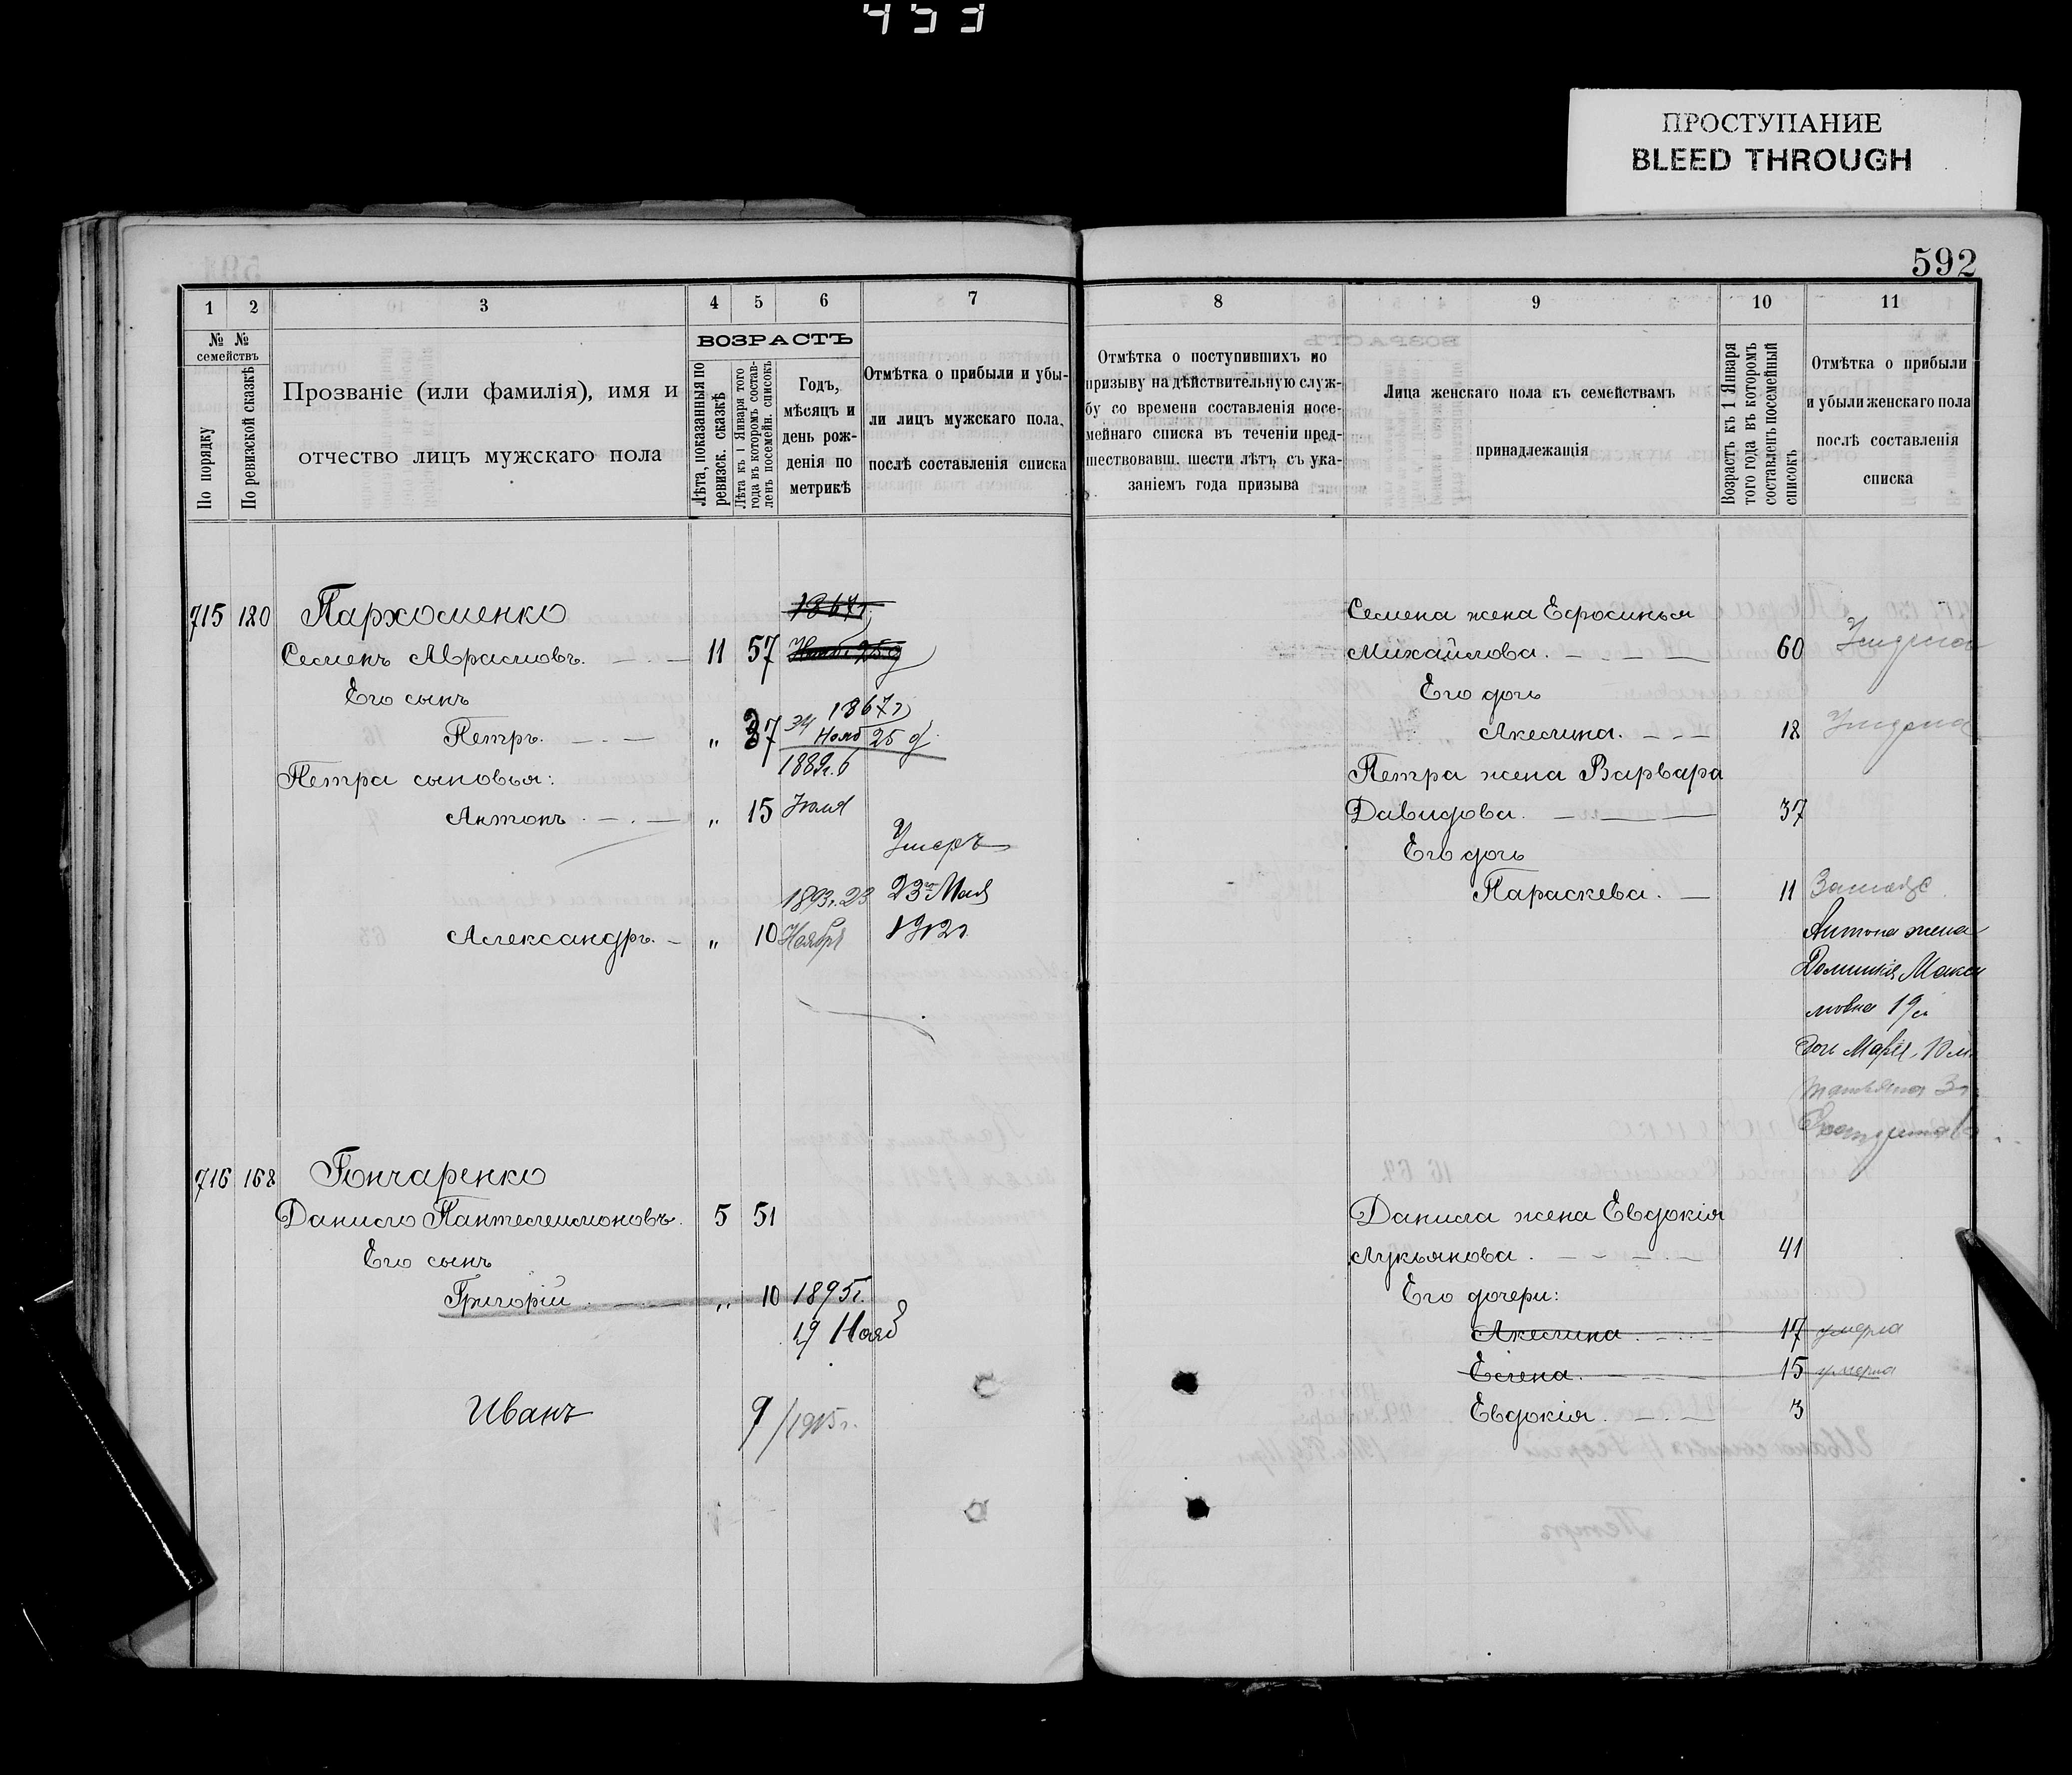 453
ПРОСТУПАНИЕ
BLEED THROUGH
592
1 2 3 4 5 6 7
№ № семействъ
По порядку
По ревизской сказкѣ
Прозваніе (или фамилія), имя и
отчество лицъ мужскаго пола
ВОЗРАСТЪ
Лѣта, показанныя по
ревизск. сказкѣ
Лѣта къ 1 Января того
года въ которомъ состав-
ленъ посемейн. списокъ
Годъ,
мѣсяцъ и
день рож-
денія по
метрикѣ
Отмѣтка о прибыли и убы-
ли лицъ мужскаго пола,
послѣ составленія списка
715 180 Пархоменко
1867г.
Семенъ Аврамовъ. 11 57
Его сынъ
1867г
Петръ. „ 37 Нояб 25 д
Петра сыновья: 1889г. 6
Антонъ „ 15 Юля
Умеръ
1893г. 23 23го Мая
Александръ. „ 10 Ноября 1912г.
716 168 Гончаренко
Данило Пантелеимоновъ. 5 51
Его сынъ
Григорій „ 10 1895г.
19 Нояб
Иванъ 9/1905г.
8 9 10 11
Отмѣтка о поступившихъ по
призыву на дѣйствительную служ-
бу со времени составленія посе-
мейнаго списка въ теченіи пред-
шествовавш. шести лѣтъ, съ ука-
заніемъ года призыва
Лица женскаго пола къ семействамъ
принадлежащія
Возрастъ къ 1 Января
того года въ которомъ
составленъ посемейный
списокъ
Отмѣтка о прибыли
и убыли женскаго пола
послѣ составленія
списка
Семена жена Ефросинья
Михайлова. 60 Умерла
Его дочь
Акелина. 18 Умерла
Петра жена Варвара
Давидова. 37
Его дочь
Параскева. 11 Замужс
Антона жена
Домникія Макси
мовна 19л
Дочь Марія 10 л.
Татьяна 3г.
Данила жена Евдокія
Лукьянова. 41
Его дочери:
Акелина 17 умерла
Елена. 15 умерла
Евдокія. 3